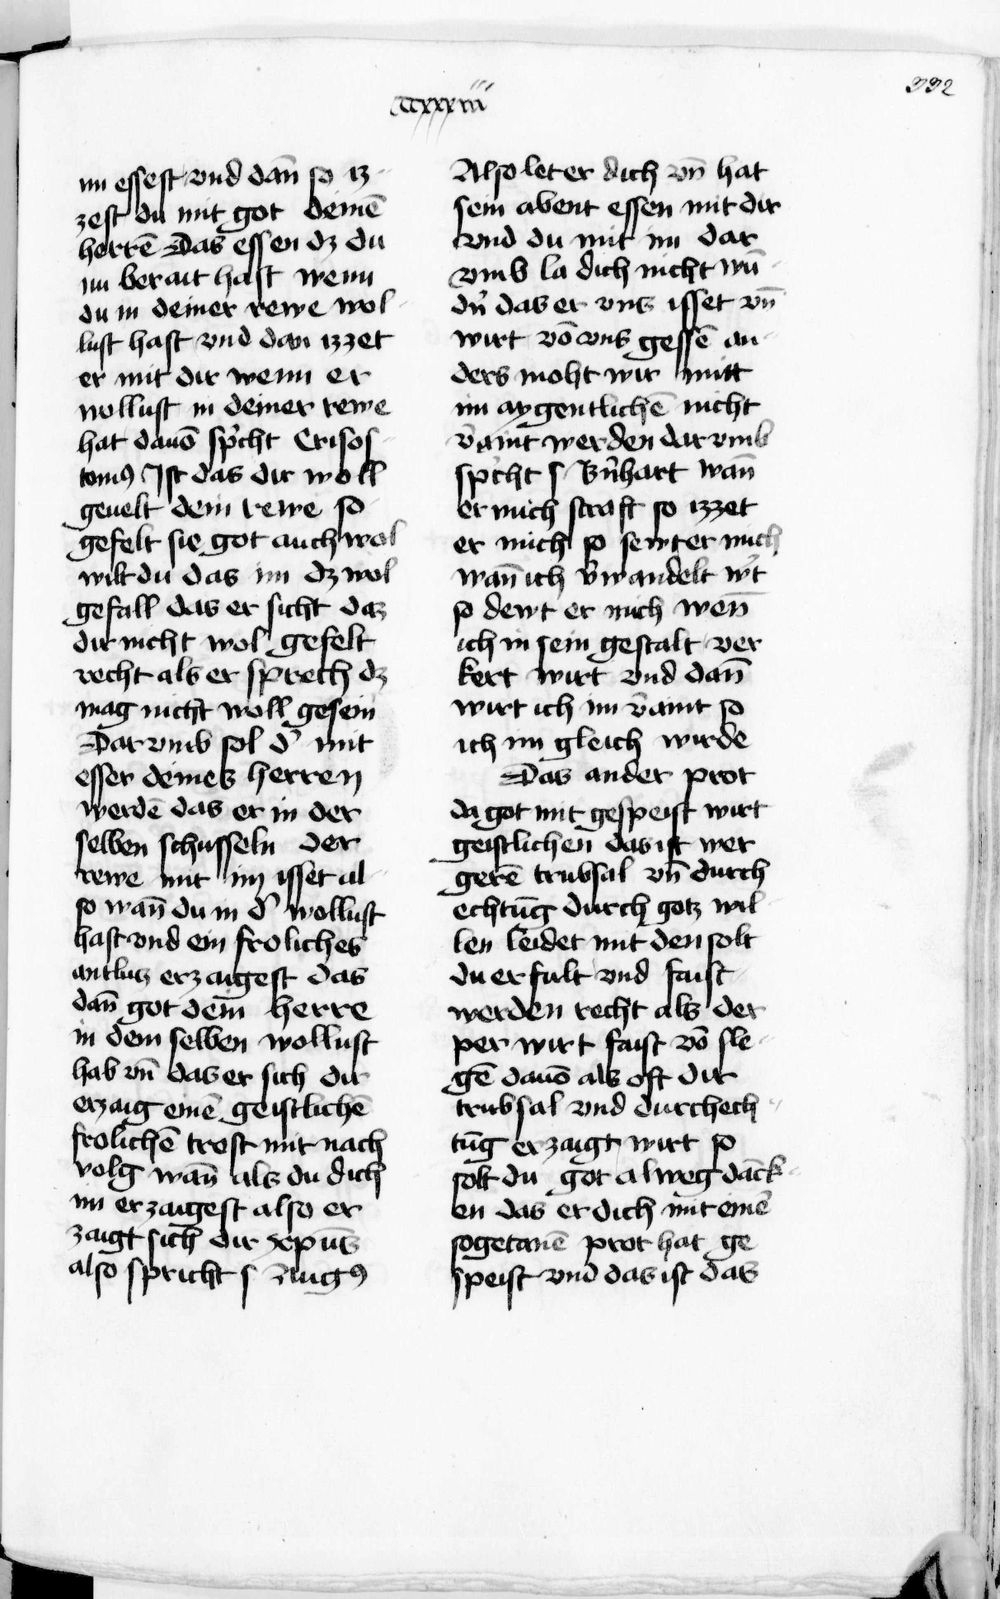 332
im essest vnd dan̄ so iz
zest du mit got deinē
herrē Das essen dz du
im berait hast wenn
du in deiner rewe wol
lust hast vnd dan izzet
er mit dir wenn er
wollust in deiner rewe
hat dauō sp̄cht Crisos
tomꝰ Ist das dir woll
geuelt dein rewe so
gefelt sie got auch wol
wilt du das im dz wol
gefall das er sicht daz
dir nicht wol gefelt
recht als er sprech dz
mag nicht woll gesein
Dar vmb sol d̄ mit
esser deines herren
werdē das er in der
selben schusseln der
rewe mit im isset al
so wan̄ du in d̄ wollust
hast vnd ein froliches
antlutz erzaigest das
dan̄ got dein̄ herre
in dem selben wollust
hab vn̄ das er sich dir
erzaig einē geistlichē
frolichē trost mit nach
volg wan̄ als du dich
im erzaigest also er
zaigt sich dir xpūs
also spricht s Augꝰ
Also let er dich vn̄ hat
sein abent essen mit dir
vnd du mit im dar
vmb la dich nicht wū
dn̄ das er vns isset vn̄
wirt vō vns gessē an
ders moht wir mitt
im aygentlichē nicht
v̄aint werden dar vmb
sp̄cht s Bn̄hart wan̄
er mich straft so izzet
er mich so sewt er mich
wan̄ ich v̄wandelt w̄t
so dewt er mich wen̄
ich in sein gestalt ver
kert wirt vnd dan̄
wirt ich im v̄aint so
ich im gleich wirde
Das ander prot
da got mit gespeist wirt
geistlichen das ist wer
gerē trubsal vn̄ durch
echtūg durch gotz wil
len leidet mit den solt
du erfult vnd faist
werden recht als der
per wirt faist vō sle
gē dauō als oft dir
trubsal vnd durchech
tūg erzaigt wirt so
solt du got alweg dāck
en das er dich mit einē
sogetanē prot hat ge
speist vnd das ist das